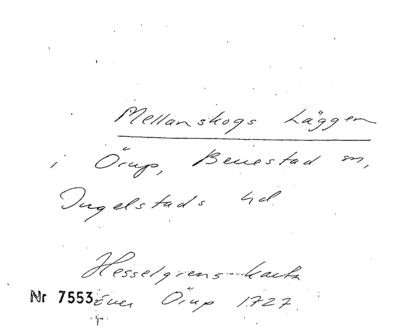 Mellanskogs Läggen
i Örup, Benestad sn,
Ingelstads hd
Hesselgrens karta
Nr 7553 över Örup 1727.